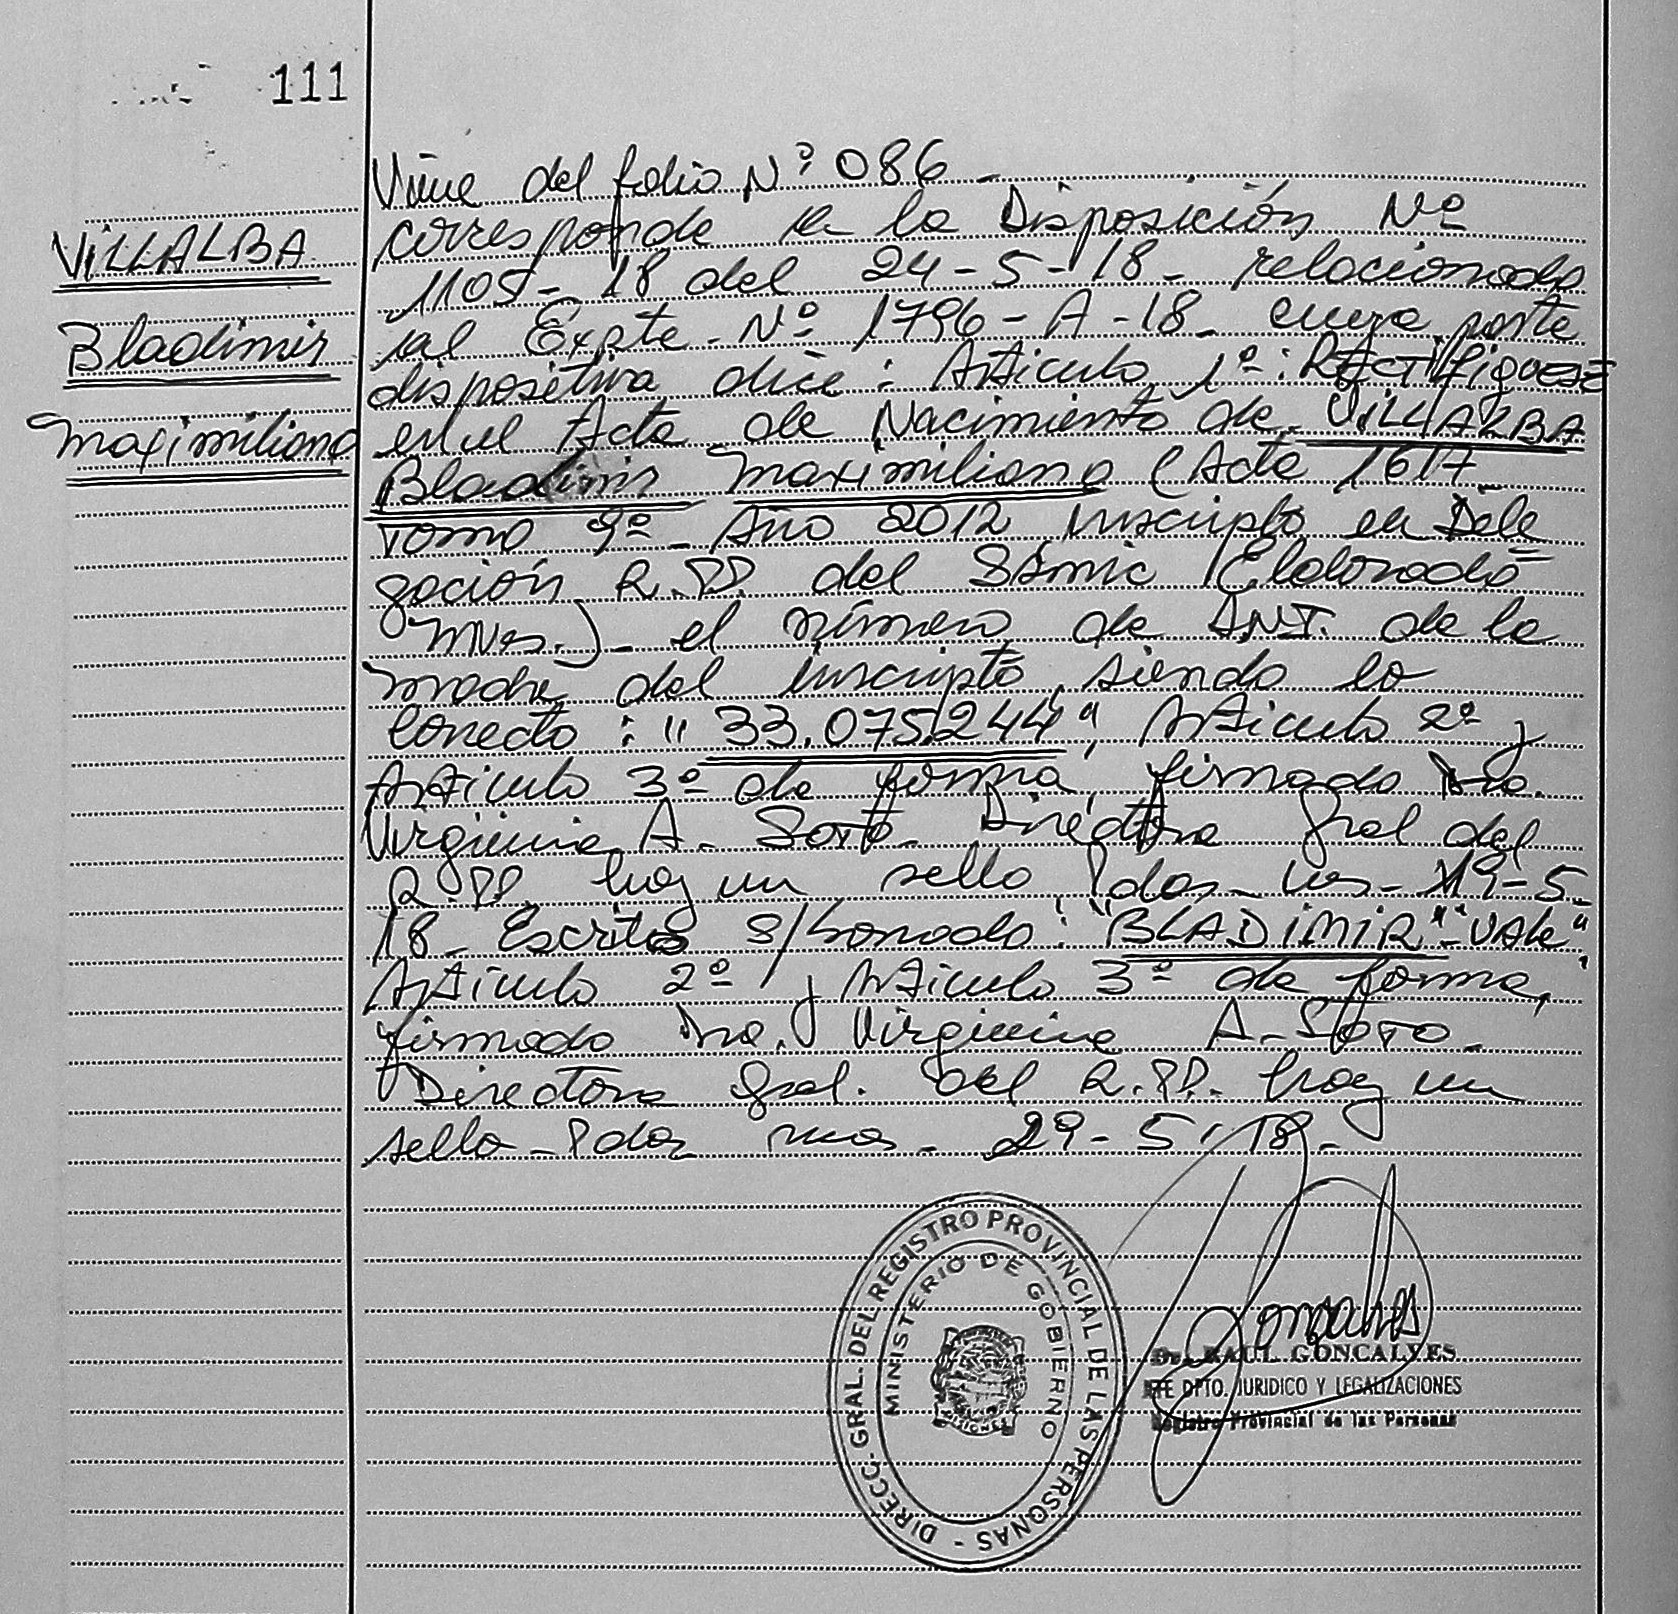 111
VILLALBA
Bladimir
Maximiliano
Viene del folio Nº 086 -
corresponde a la Disposición Nº
1105-18 del 24-5-18- relacionado
al Expte- Nº 1796-A-18- cuya parte
dispositiva dice: Artículo 1º: RECTifiquese
en el Acta de Nacimiento de VILLALBA
Bladimir Maximiliano (Acta 1617
Tomo 9º- Año 2012 inscripto en Dele
gación R.PP. del Samic (Eldorado
Mnes.)- el número de D.N.I. de la
madre del inscripto siendo lo
correcto: "33.075.244", Artículo 2º y
Artículo 3º de forma, firmado Dra.
Virginia A. Soto- Directora Gral del
R.PP. hay un sello Pdas- 29-5-
18- Escrito s/borrado: "BLADIMIR"-"Vale"
Artículo 2º y Artículo 3º de forma,
firmado Dra. Virginia A- Soto-
Directora Gral. del R.PP. hay un
sello-Pdas 29-5-18-
DIRECC. GRAL. DEL REGISTRO PROVINCIAL DE LAS PERSONAS -
MINISTERIO DE GOBIERNO
MISIONES
Dr. RAUL GONCALVES
JFE DPTO. JURIDICO Y LEGALIZACIONES
Registro Provincial de las Personas